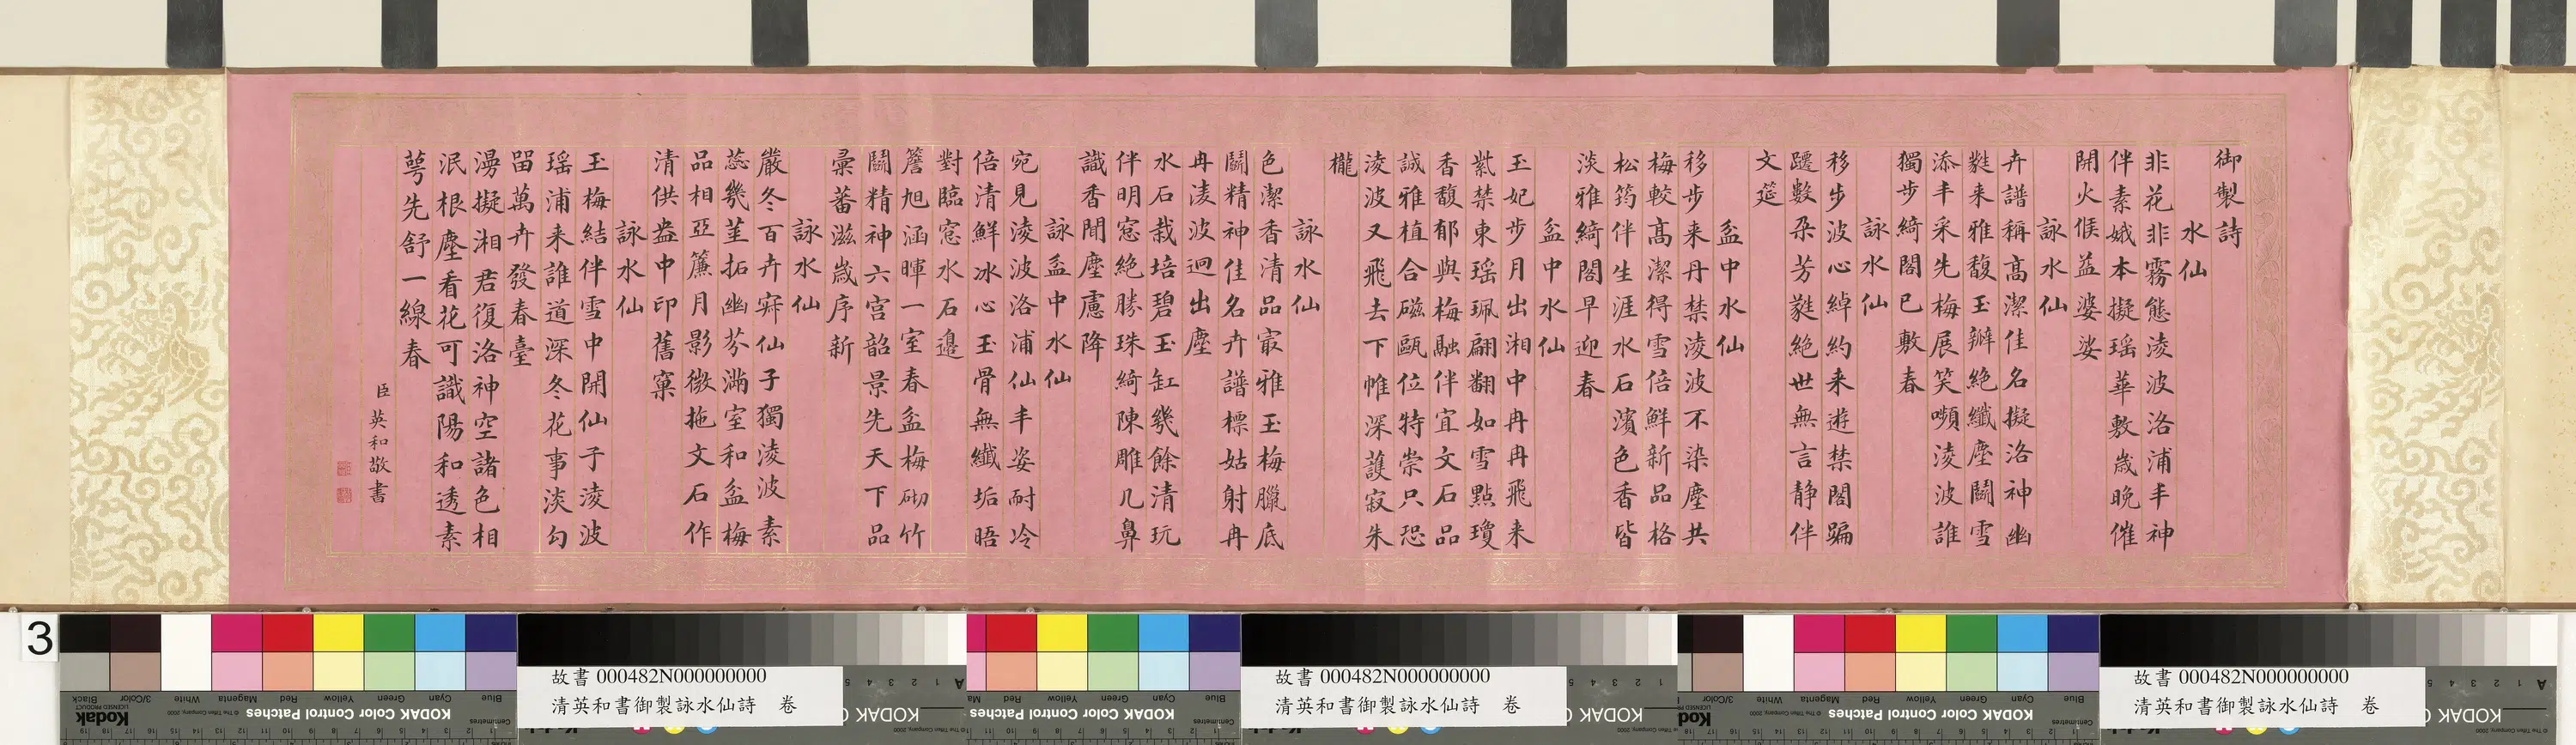 御製詩
水仙
非花非霧態淩波洛浦丰神
伴素娥本擬瑤華敷歲晚催
開火候益婆娑
詠水仙
卉譜稱高潔佳名擬洛神幽
蕤来雅馥玉瓣絕纖塵鬭雪
添丰采先梅展笑嚬淩波誰
獨步綺閣已敷春
詠水仙
移步波心綽約来遊禁閣騙
躚數朶芳蕤絕世無言静伴
文筵
盆中水仙
移步来丹禁淩波不染塵共
梅較高潔得雪倍鮮新品格
松筠伴生涯水石濱色香皆
淡雅綺閣早迎春
盆中水仙
玉妃步月出湘中冉冉飛来
紫禁東瑶珮翩翻如雪點瓊
香馥郁與梅融伴宜文石品
誠雅植合磁甌位特崇只恐
淩波又飛去下帷深護寂朱
櫳
詠水仙
色潔香清品㝡雅玉梅臘底
鬭精神佳名卉譜標姑射冉
冉淩波迥出塵
水石栽培碧玉缸幾餘清玩
伴明窓絕勝珠綺陳雕几鼻
識香聞塵慮降
詠盆中水仙
宛見淩波洛浦仙丰姿耐冷
倍清鮮冰心玉骨無纖垢晤
對臨窓水石邊
簷旭涵暉一室春盆梅砌竹
鬭精神六宮韶景先天下品
彙蕃滋歲序新
詠水仙
嚴冬百卉寂仙子獨淩波素
蕊幾莖拓幽芬滿室和盆梅
品相亞簾月影微拖文石作
清供盎中印舊窠
詠水仙
玉梅結伴雪中開仙子淩波
瑶浦来誰道深冬花事淡勾
留萬卉發春臺
漫擬湘君復洛神空諸色相
泯根塵看花可識陽和透素
萼先舒一線春
臣英和敬書
3
故書 000482N000000000
清英和書御製詠水仙詩 卷
故書 000482N000000000
清英和書御製詠水仙詩 卷
故書 000482N000000000
清英和書御製詠水仙詩 卷
KODAK Color Control Patches
KODAK Color Control Patches
KODAK Color Control Patches